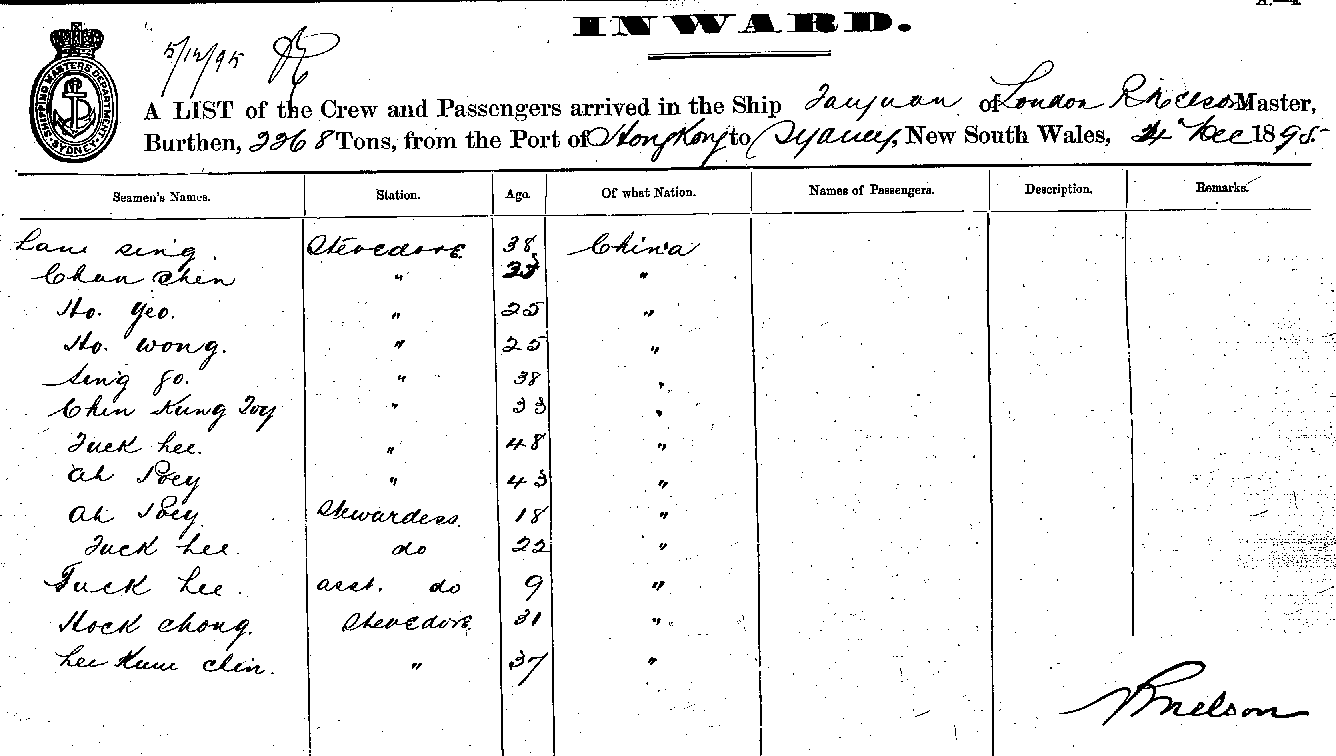 INWARD.
5/12/95
SHIPPING MASTERS DEPARTMENT SYDNEY
A LIST of the Crew and Passengers arrived in the Ship Taiyuan of London R Nelson Master,
Burthen, 2268 Tons, from the Port of Hong Kong to Sydney, New South Wales, 4" Dec 1895
Seamen's Names. Station. Age. Of what Nation. Names of Passengers. Description. Remarks.
Lam sing. Stevedore 38 China
Chan Chen " "
Ho. Yeo. " 25 "
Ho. Wong. " 25 "
Sing Go. " 38 "
Chin Kung Toy " 33 "
Tuck hee. " 48 "
Ah Poey " 43 "
Ah Poey Stewardess. 18 "
Tuck hee. do 22 "
Tuck hee. asst. do 9 "
Hock Chong. Stevedore 31 "
Lee Kum Chin. " 37 "
R Nelson